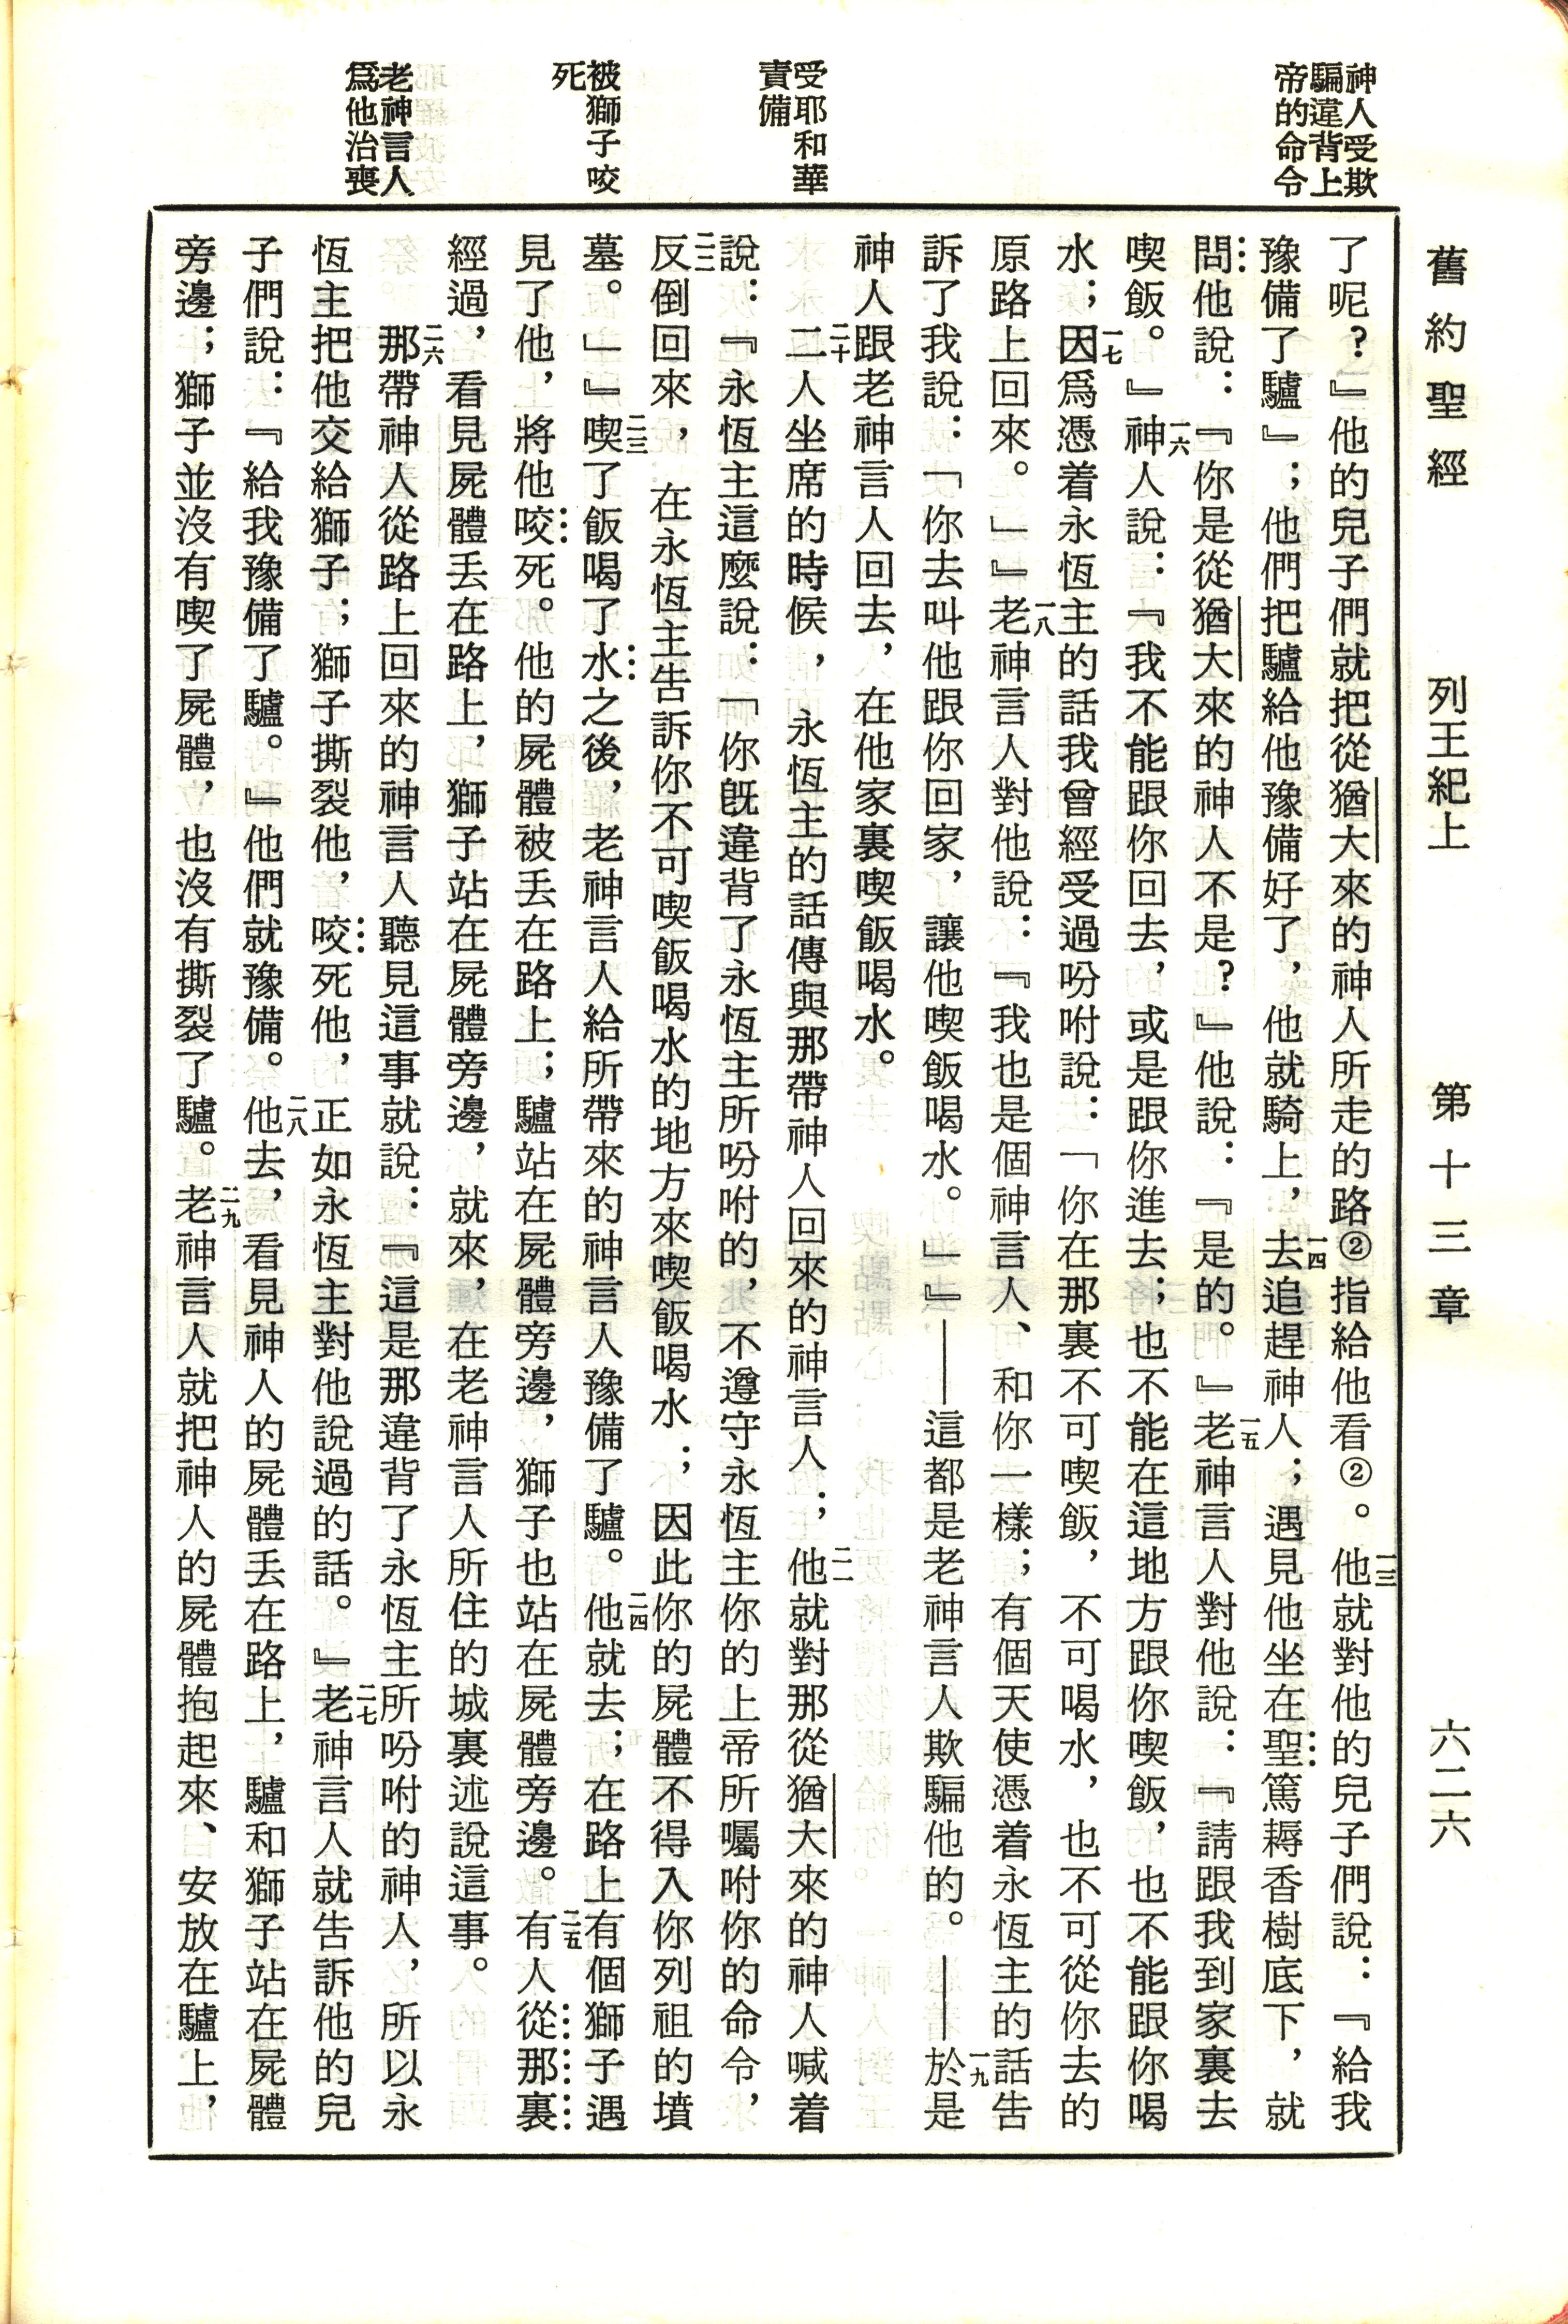 舊約聖經　列王紀上　第十三章　六二六
神人受欺
騙違背上
帝的命令
受耶和華
責備
被獅子咬
死
老神言人
爲他治喪
了呢？』他的兒子們就把從猶大來的神人所走的路②指給他看②。一三他就對他的兒子們說：『給我
豫備了驢』；他們把驢給他豫備好了，他就騎上，一四去追趕神人；遇見他坐在聖篤耨香樹底下，就
問他說：『你是從猶大來的神人不是？』他說：『是的。』一五老神言人對他說：『請跟我到家裏去
喫飯。』一六神人說：『我不能跟你回去，或是跟你進去；也不能在這地方跟你喫飯，也不能跟你喝
水；一七因爲憑着永恆主的話我曾經受過吩咐說：「你在那裏不可喫飯，不可喝水，也不可從你去的
原路上回來。」』一八老神言人對他說：『我也是個神言人、和你一樣；有個天使憑着永恆主的話告
訴了我說：「你去叫他跟你回家，讓他喫飯喝水。」』——這都是老神言人欺騙他的。——一九於是
神人跟老神言人回去，在他家裏喫飯喝水。
二十二人坐席的時候，永恆主的話傳與那帶神人回來的神言人；二一他就對那從猶大來的神人喊着
說：『永恆主這麼說：「你旣違背了永恆主所吩咐的，不遵守永恆主你的上帝所囑咐你的命令，
二二反倒回來，在永恆主告訴你不可喫飯喝水的地方來喫飯喝水；因此你的屍體不得入你列祖的墳
墓。」』二三喫了飯喝了水之後，老神言人給所帶來的神言人豫備了驢。二四他就去；在路上有個獅子遇
見了他，將他咬死。他的屍體被丟在路上；驢站在屍體旁邊，獅子也站在屍體旁邊。二五有人從那裏
經過，看見屍體丟在路上，獅子站在屍體旁邊，就來，在老神言人所住的城裏述說這事。
二六那帶神人從路上回來的神言人聽見這事就說：『這是那違背了永恆主所吩咐的神人，所以永
恆主把他交給獅子；獅子撕裂他，咬死他，正如永恆主對他說過的話。』二七老神言人就告訴他的兒
子們說：『給我豫備了驢。』他們就豫備。二八他去，看見神人的屍體丟在路上，驢和獅子站在屍體
旁邊；獅子並沒有喫了屍體，也沒有撕裂了驢。二九老神言人就把神人的屍體抱起來、安放在驢上，